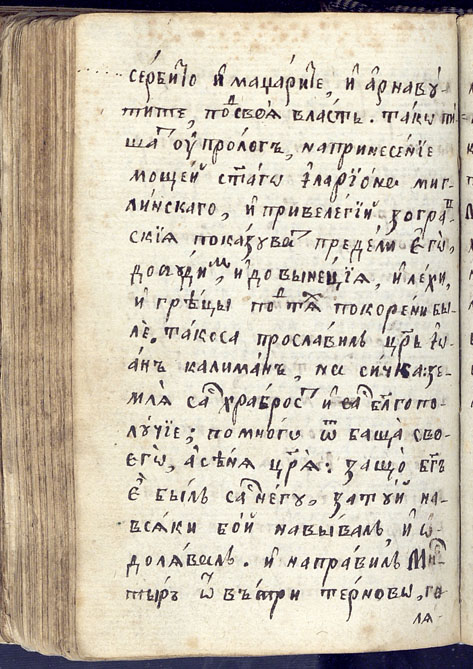 сербїю и маџарїе, и арнаву-
тите, под своя власть. тако пи-
шат ѹ прологъ, на принесенїе
мощей ст҃аго їларїона миг-
линскаго, и привелегїй зограф
скїя показуват предели єго,
до аудим, и до вынецїя, и лехи,
и грѣцы под тях покорени бы-
ле. такоса прославиль цр҃ь їѡ-
анъ калиманъ, на сичка зе-
мля сас храброст и са бл҃гопо
лучїе; помного ѿ баща сво-
его, асѣня цр҃я. защо бг҃ъ
є быль сас негѡ, затуй на-
всяки бой навываль, и ѡ-
долявалъ. и направилъ мнс
тыръ ѿ вътри терново, го
ля-